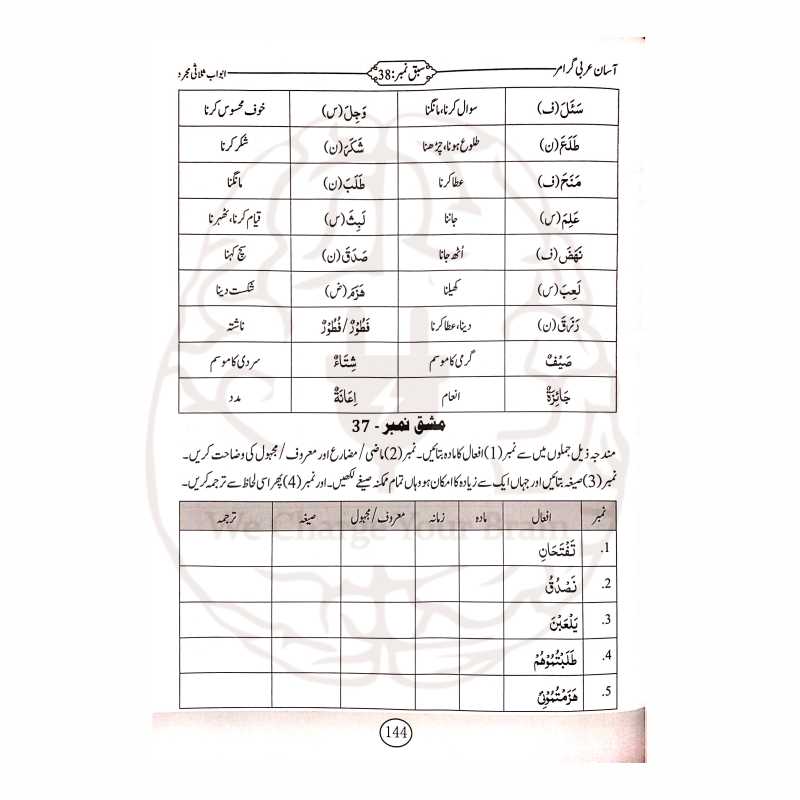 آسان عربی گرامر سبق نمبر:38 ابواب ثلاثی مجرد
سَئَلَ (ف) سوال کرنا، مانگنا وَجِلَ (س) خوف محسوس کرنا
طَلَعَ (ن) طلوع ہونا، چڑھنا شَكَرَ (ن) شکر کرنا
مَنَحَ (ف) عطا کرنا طَلَبَ (ن) مانگنا
عَلِمَ (س) جاننا لَبِثَ (س) قیام کرنا، ٹھہرنا
نَهَضَ (ف) اُٹھ جانا صَدَقَ (ن) سچ کہنا
لَعِبَ (س) کھیلنا هَزَمَ (ض) شکست دینا
رَزَقَ (ن) دینا، عطا کرنا فَطُوْرٌ / فُطُوْرٌ ناشتہ
صَيْفٌ گرمی کا موسم شِتَاءٌ سردی کا موسم
جَائِزَةٌ انعام اِعَانَةٌ مدد
مشق نمبر - 37
مندجہ ذیل جملوں میں سے نمبر (1) افعال کا مادہ بتائیں۔ نمبر (2) ماضی / مضارع اور معروف / مجہول کی وضاحت کریں۔
نمبر (3) صیغہ بتائیں اور جہاں ایک سے زیادہ کا امکان ہو وہاں تمام ممکنہ صیغے لکھیں۔ اور نمبر (4) پھر اسی لحاظ سے ترجمہ کریں۔
نمبر افعال مادہ زمانہ معروف / مجہول صیغہ ترجمہ
We Change Your Brain
1. تَفْتَحَانِ
2. نَصْدُقُ
3. يَلْعَبْنَ
4. طَلَبْتُمُوْهُمْ
5. هَزَمْتُمُوْنِيْ
144